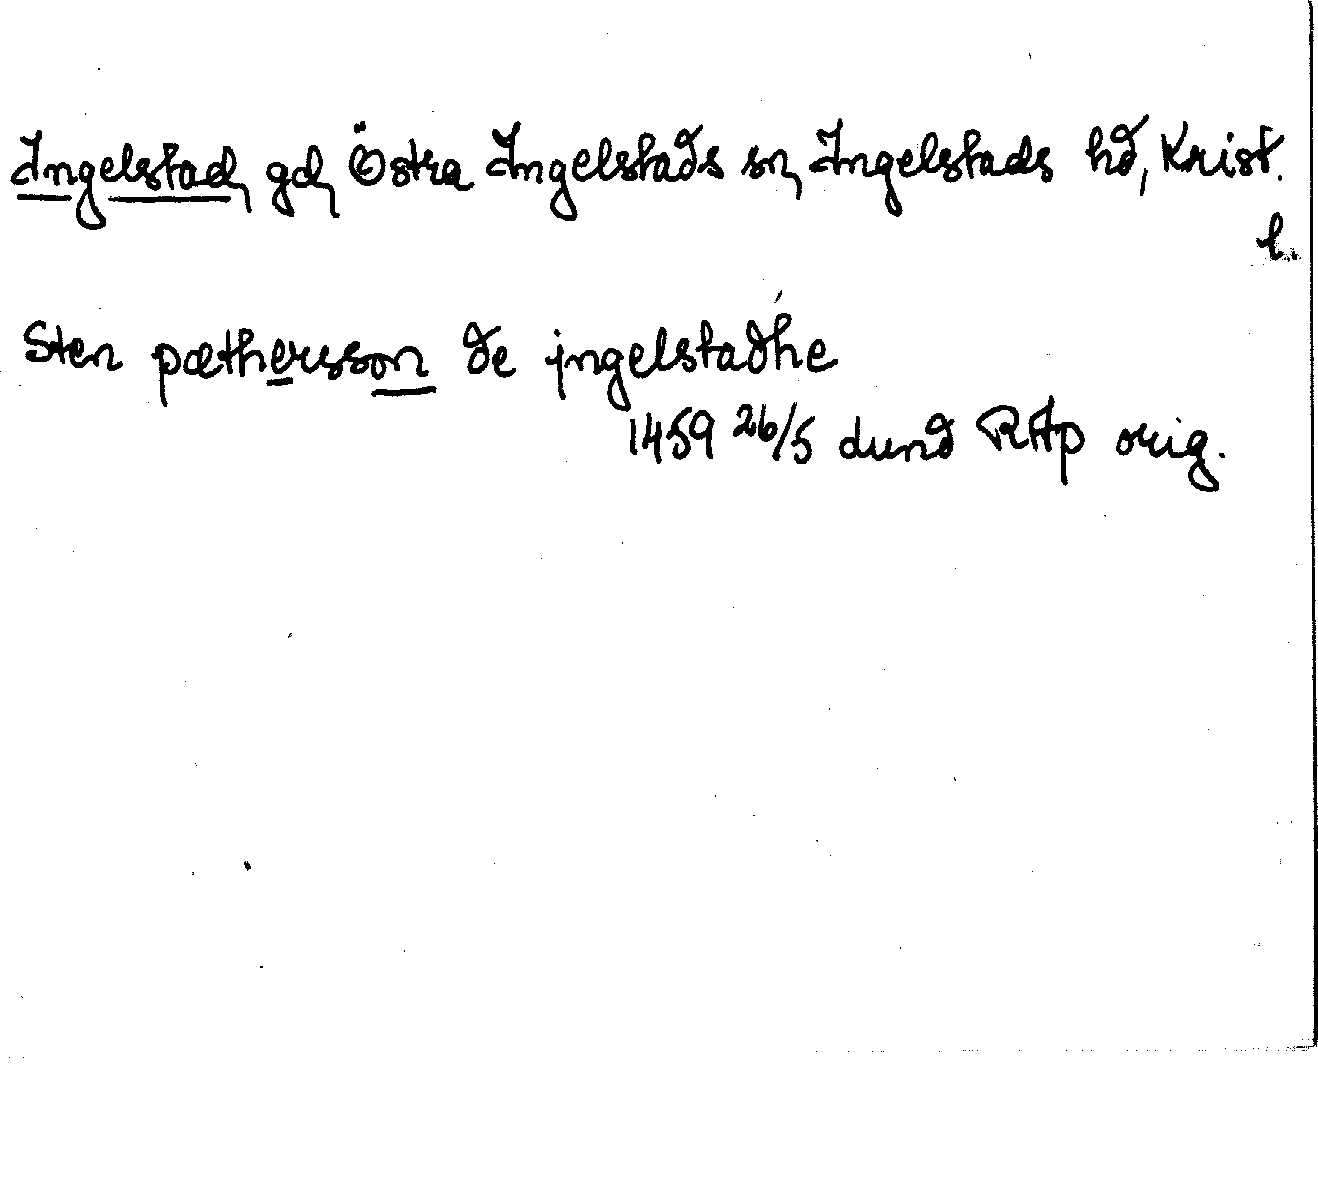 Ingelstad, gd, Östra Ingelstads sn, Ingelstads hd, Krist.
l.
Sten pæthersson de jngelstadhe
1459 26/5 dund RAp orig.